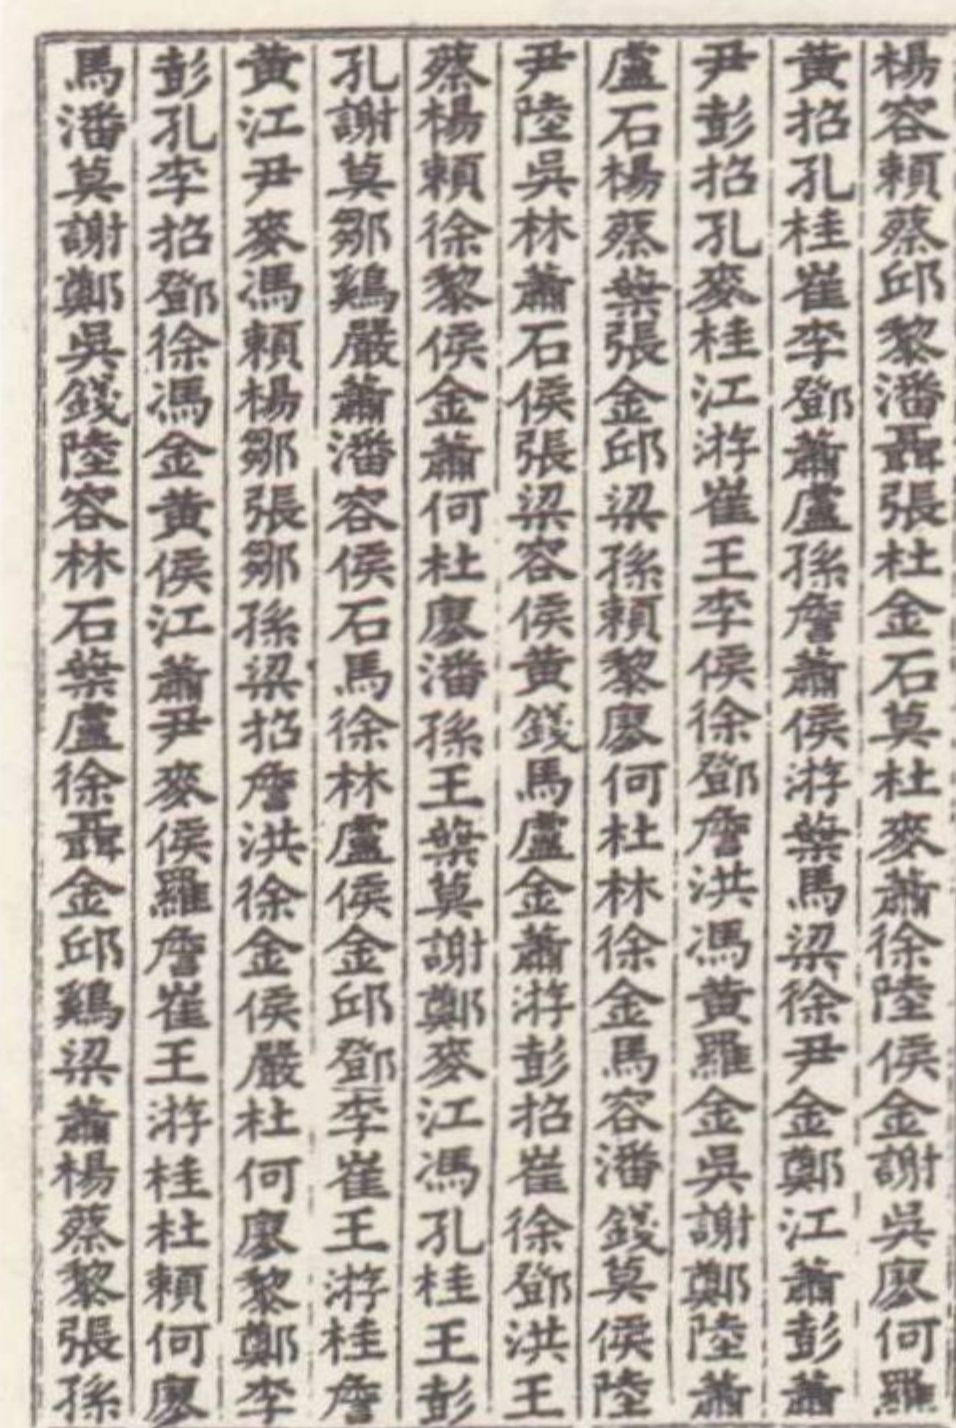 楊容賴蔡邱黎潘聶張杜金石莫杜麥蕭徐陸侯金謝吳廖何羅
黃招孔桂崔李鄧蕭盧孫詹蕭侯游葉馬梁徐尹金鄭江蕭彭蕭
尹彭招孔麥桂江游崔王李侯徐鄧詹洪馮黃羅金吳謝鄭陸蕭
盧石楊蔡葉張金邱梁孫賴黎廖何杜林徐金馬容潘錢莫侯陸
尹陸吳林蕭石侯張梁容侯黃錢馬盧金蕭游彭招崔徐鄧洪王
蔡楊賴徐黎侯金蕭何杜廖潘孫王葉莫謝鄭麥江馮孔桂王彭
孔謝莫鄒鷄嚴蕭潘容侯石馬徐林盧侯金邱鄧李崔王游桂詹
黃江尹麥馮賴楊鄒張鄒孫梁招詹洪徐金侯嚴杜何廖黎鄭李
彭孔李招鄧徐馮金黃侯江蕭尹麥侯羅詹崔王游桂杜賴何廖
馬潘莫謝鄭吳錢陸容林石葉盧徐聶金邱鷄梁蕭楊蔡黎張孫